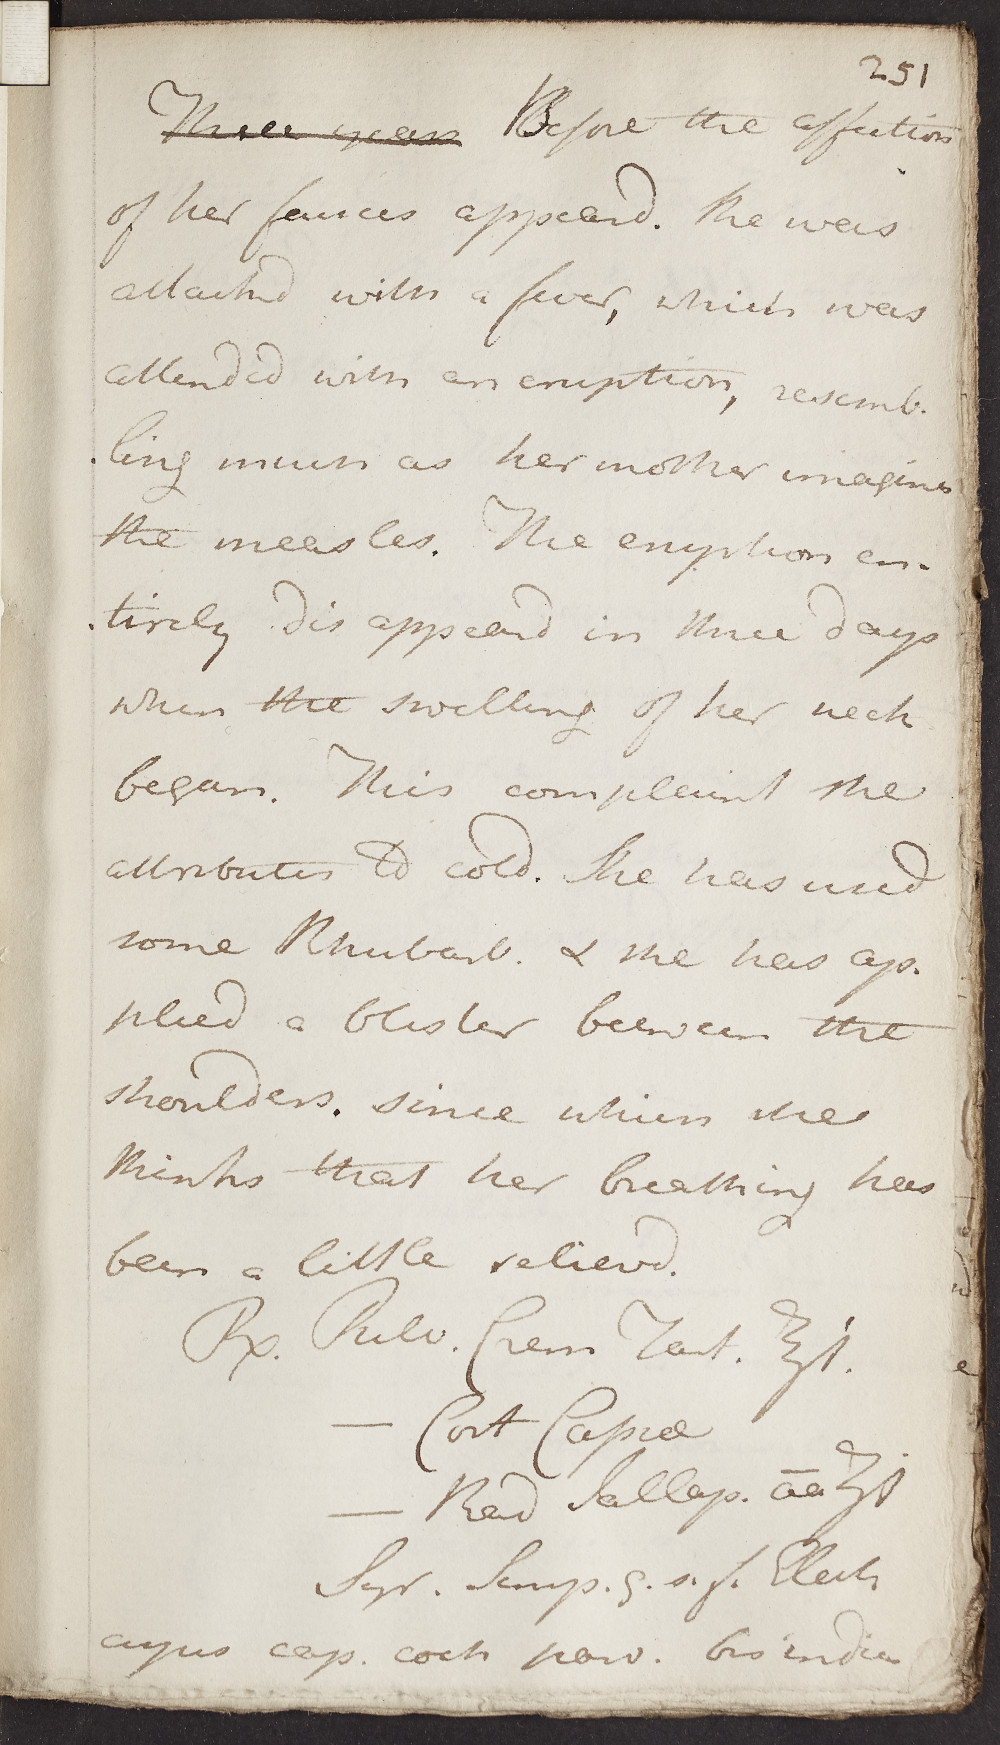 251
Three years Before the affection
of her fauces appeard. She was
attackd with a fever, which was
attended with an eruption, resemb.
.ling much as her mother imagines
the measles. The eruption en.
.tirely disappeard in three days
when the swelling of her neck
began. This complaint she
attributes to cold. She has used
some Rhubarb. & she has ap.
plied a blister between the
shoulders. since which she
thinks that her breathing has
been a little relievd.
Rx. Pulv. Crem Tart. ℥i.
— Cort
— Rad Jallap. āā ʒi
Syr. Simp. q. s. f. Elect.
cujus cap. coch parv. bis indies